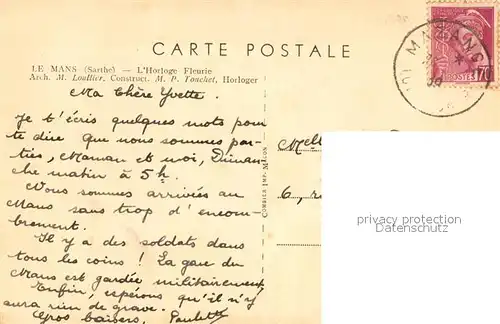 CARTE POSTALE
LE MANS (Sarthe) — L'Horloge Fleurie
Arch. M. Loullier, Construct. M. P. Touchet, Horloger
Ma Chère Yvette.
Je t'écris quelques mots pour
te dire que nous sommes par-
ties, Maman et moi, Diman-
che matin à 5 h.
Nous sommes arrivées au
Mans sans trop d'encom-
brement.
Il y a des soldats dans
tous les coins ! La gare du
Mans est gardée militairement
Enfin, espérons qu'il n'y
aura rien de grave.
Gros baisers, Paulette
COMBIER IMP. MACON
LE MANS GARE
70
POSTES
Melle
6, r
protection of privacy
Datenschutz